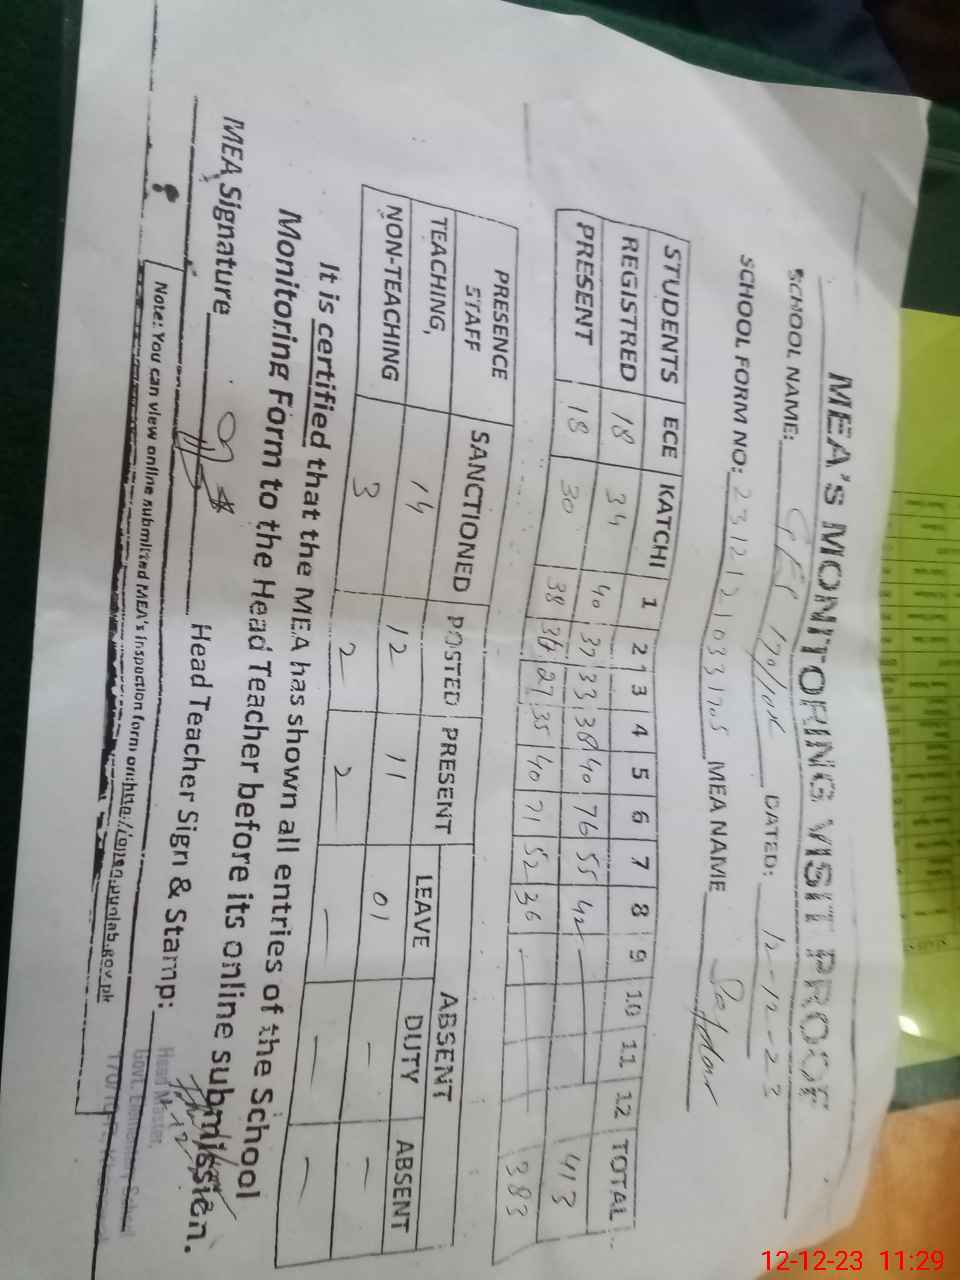 MEA's MONITORING VISIT PROOF
SCHOOL NAME: GES 170/10R DATED: 12-12-23
SCHOOL FORM NO: 23121 MEA NAME Safdar
STUDENTS ECE KATCHI 1 2 3 4 5 6 7 8 9 10 11 12 TOTAL
REGISTRED 18 34 40 37 33 38 40 76 55 42 413
PRESENT 18 30 38 36 27 35 40 71 52 36 383
PRESENCE STAFF SANCTIONED POSTED PRESENT ABSENT
LEAVE DUTY ABSENT
TEACHING, 14 12 11 01 - -
NON-TEACHING 3 2 2 - - -
It is certified that the MEA has shown all entries of the School
Monitoring Form to the Head Teacher before its online submission.
MEA Signature Head Teacher Sign & Stamp:
Head Master
Govt. Elementary School
170/10.R
Note: You can view online submitted MEA's inspection form on:
12-12-23 11:29